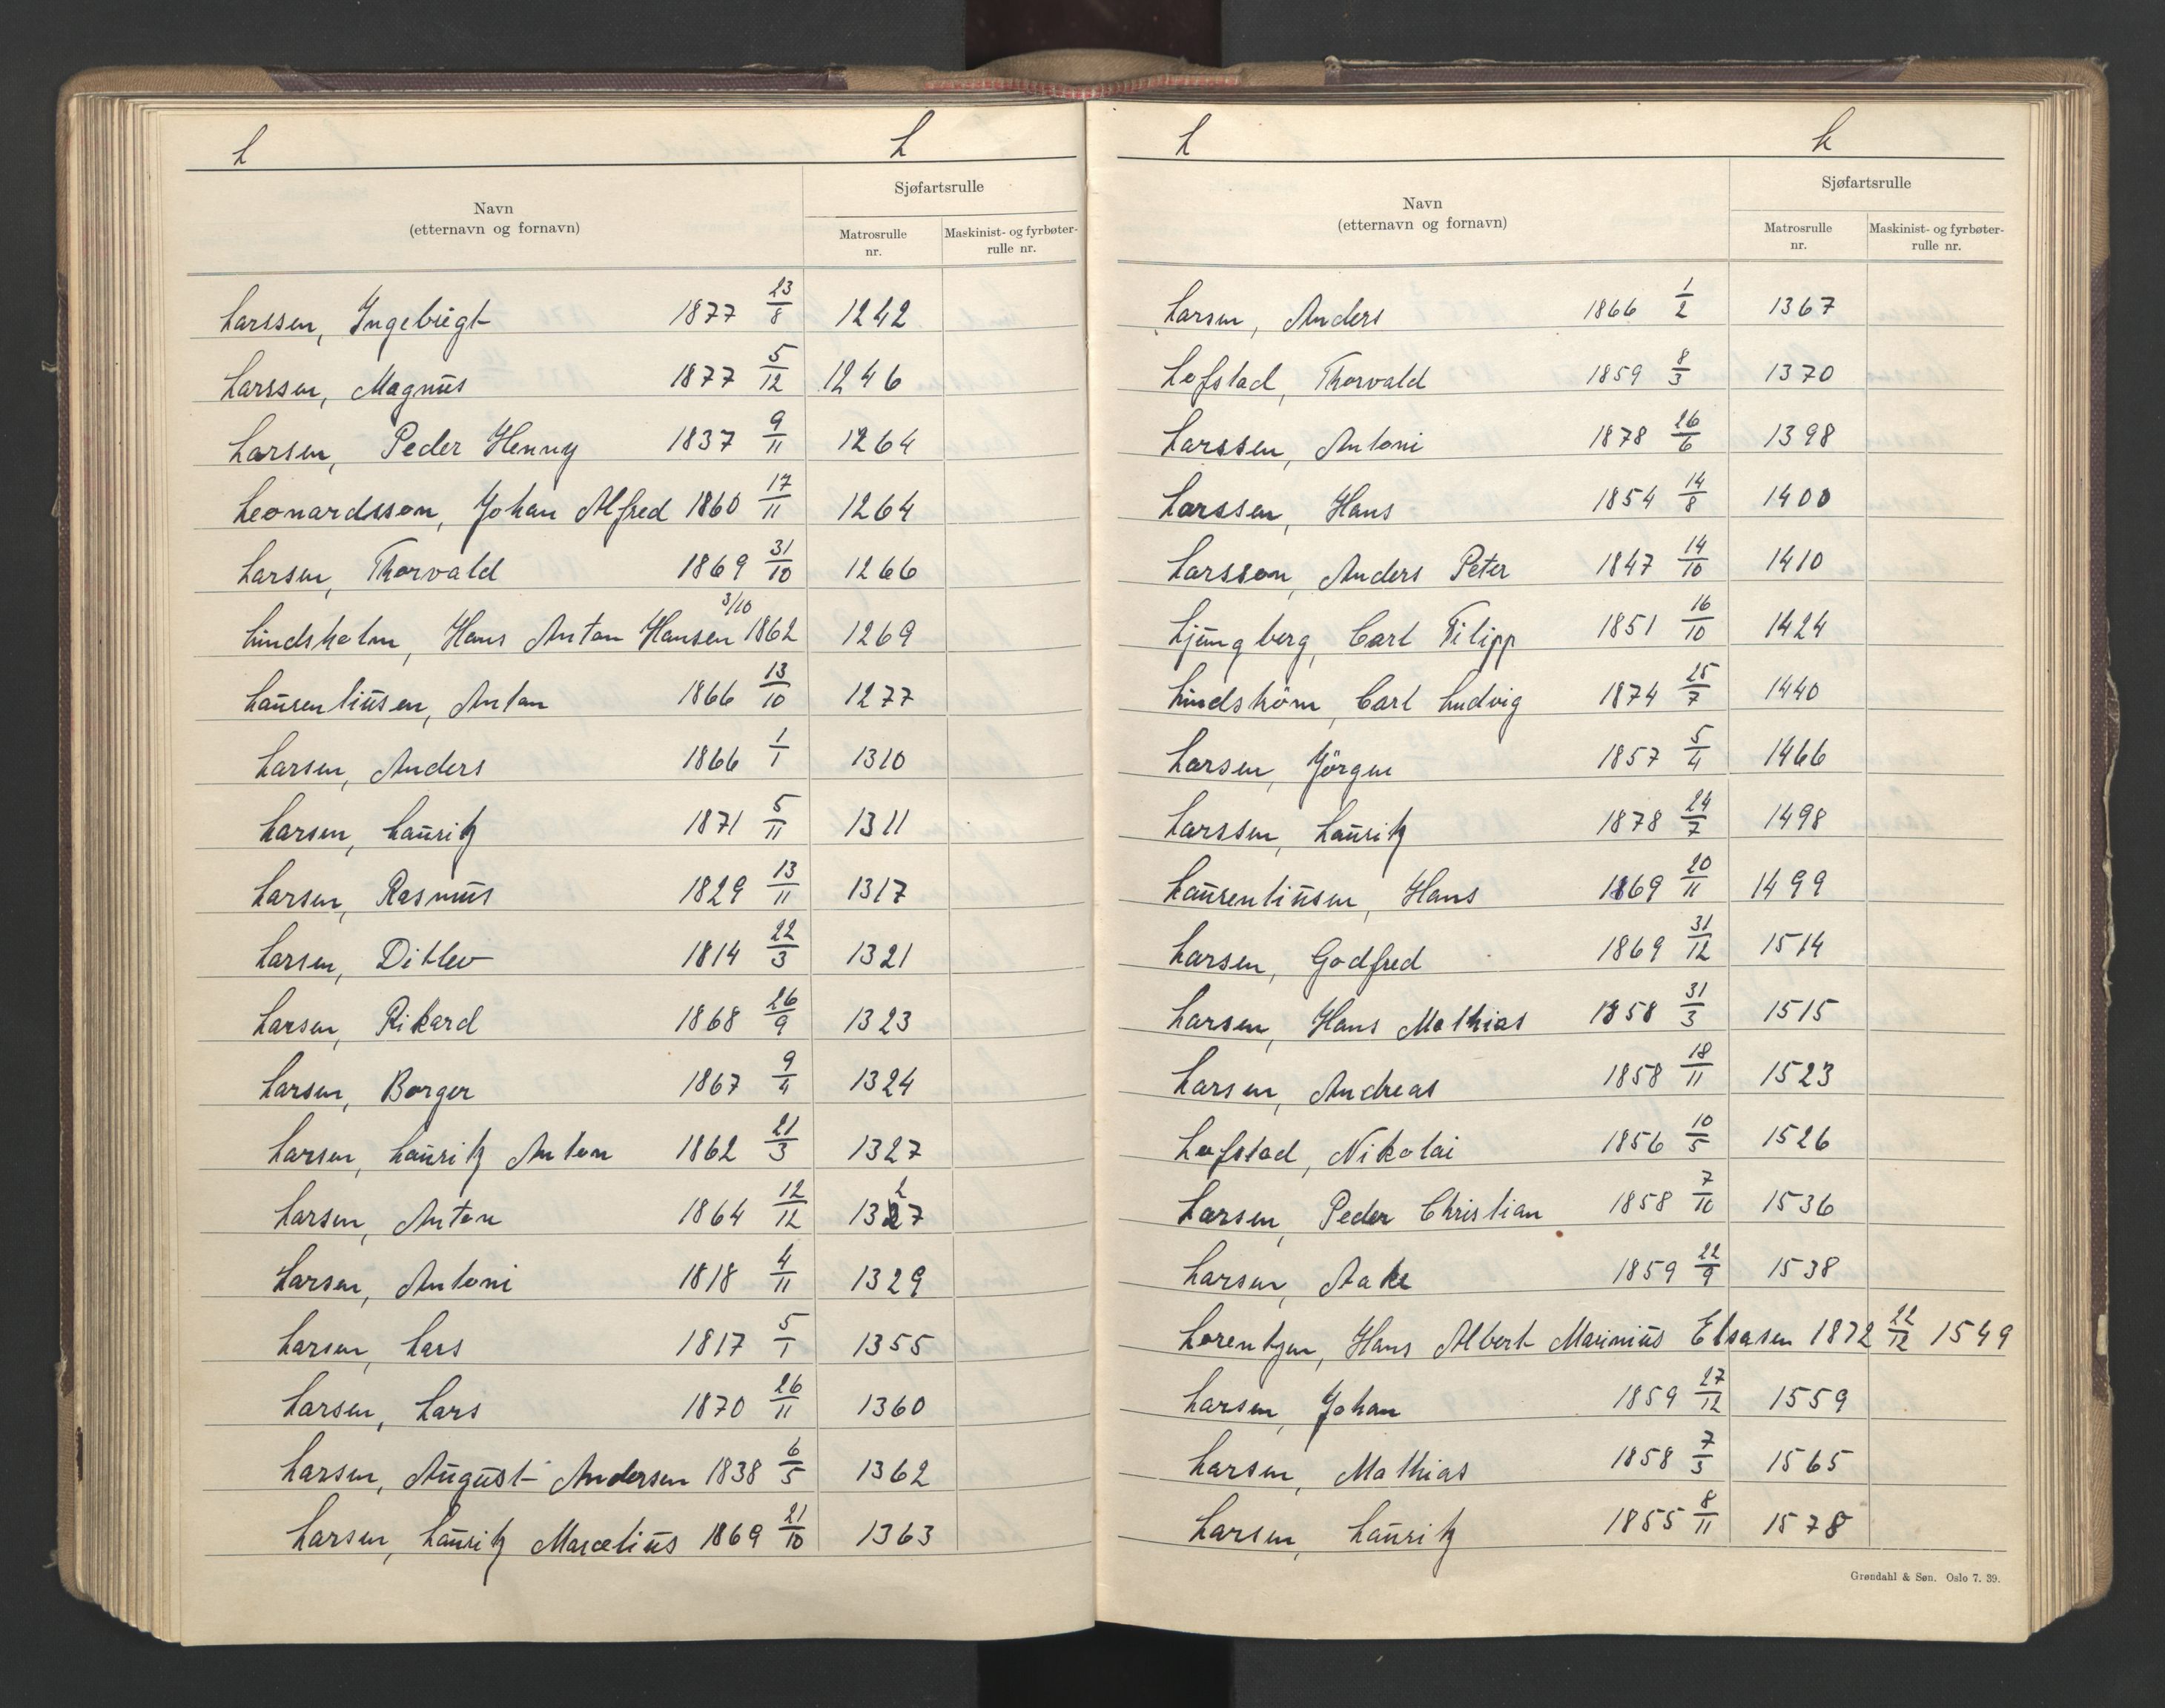 L L
Navn
(etternavn og fornavn)
Sjøfartsrulle
Matrosrulle nr.
Maskinist- og fyrbøter-rulle nr.
Larssen, Ingebrigt 1877 23/8 1242
Larssen, Magnus 1877 5/12 1246
Larsen, Peder Henny 1837 9/11 1264
Leonardsson, Johan Alfred 1860 17/11 1264
Larsen, Thorvald 1869 31/10 1266
Lindsholm, Hans Anton Hansen 3/10 1862 1269
Laurentiusen, Anton 1866 13/10 1277
Larsen, Anders 1866 1/1 1310
Larsen, Lauritz 1871 5/11 1311
Larsen, Rasmus 1829 13/11 1317
Larsen, Ditlev 1814 22/3 1321
Larsen, Rikard 1868 26/9 1323
Larsen, Borger 1867 9/4 1324
Larsen, Lauritz Anton 1862 21/3 1327
Larsen, Anton 1864 12/12 1327
Larsen, Antoni 1818 4/11 1329
Larsen, Lars 1817 5/1 1355
Larsen, Lars 1870 26/11 1360
Larsen, August Andersen 1838 6/5 1362
Larsen, Lauritz Marcelius 1869 21/10 1363
L L
Navn
(etternavn og fornavn)
Sjøfartsrulle
Matrosrulle nr.
Maskinist- og fyrbøter-rulle nr.
Larsen, Anders 1866 1/2 1367
Lofstad, Thorvald 1859 8/3 1370
Larssen, Antoni 1878 26/6 1398
Larssen, Hans 1854 14/8 1400
Larsson, Anders Peter 1847 14/10 1410
Ljungberg, Carl Filipp 1851 16/10 1424
Lindström, Carl Ludvig 1874 25/7 1440
Larsen, Jörgen 1857 5/4 1466
Larssen, Lauritz 1878 24/7 1498
Laurentiusen, Hans 1869 20/11 1499
Larsen, Godfred 1869 31/12 1514
Larsen, Hans Mathias 1858 31/3 1515
Larsen, Andreas 1858 18/11 1523
Lofstad, Nikolai 1856 10/5 1526
Larsen, Peder Christian 1858 7/10 1536
Larsen, Aake 1859 22/9 1538
Lorentzen, Hans Albert Marinius Elsasen 1872 22/12 1549
Larsen, Johan 1859 27/12 1559
Larsen, Mathias 1858 7/3 1565
Larsen, Lauritz 1855 8/11 1578
Grøndahl & Søn. Oslo 7. 39.